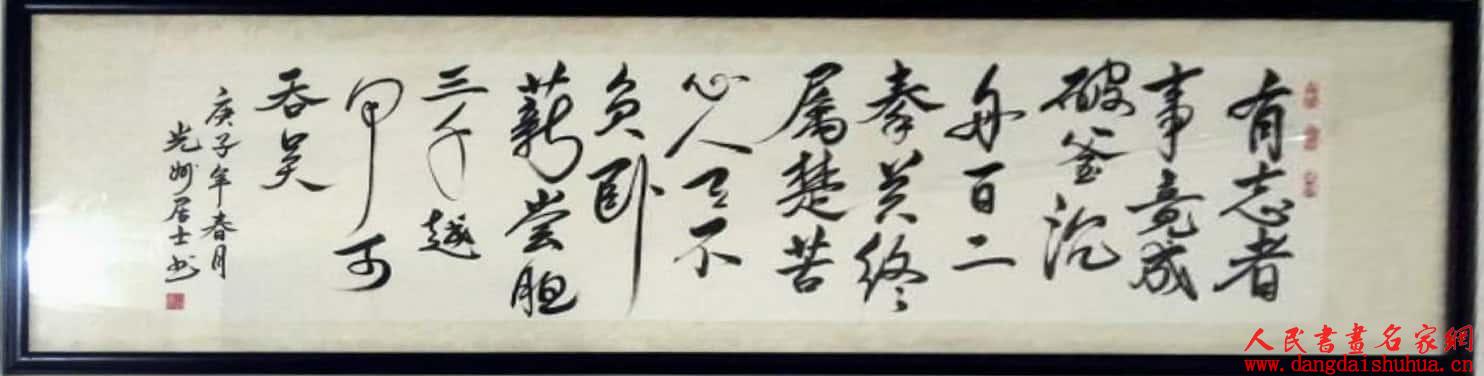 有志者
事竟成
破釜沉
舟百二
秦关终
属楚苦
心人天不
负卧
薪尝胆
三千越
甲可
吞吴
庚子年春月
光州居士书
人民書畫名家網
www.dangdaishuhua.cn